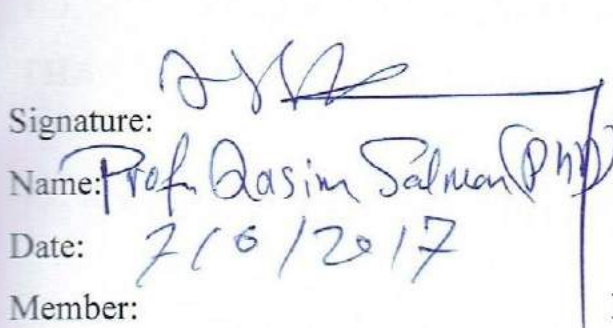 Signature:
Name: Prof. Qasim Salman (PhD)
Date: 7/6/2017
Member: